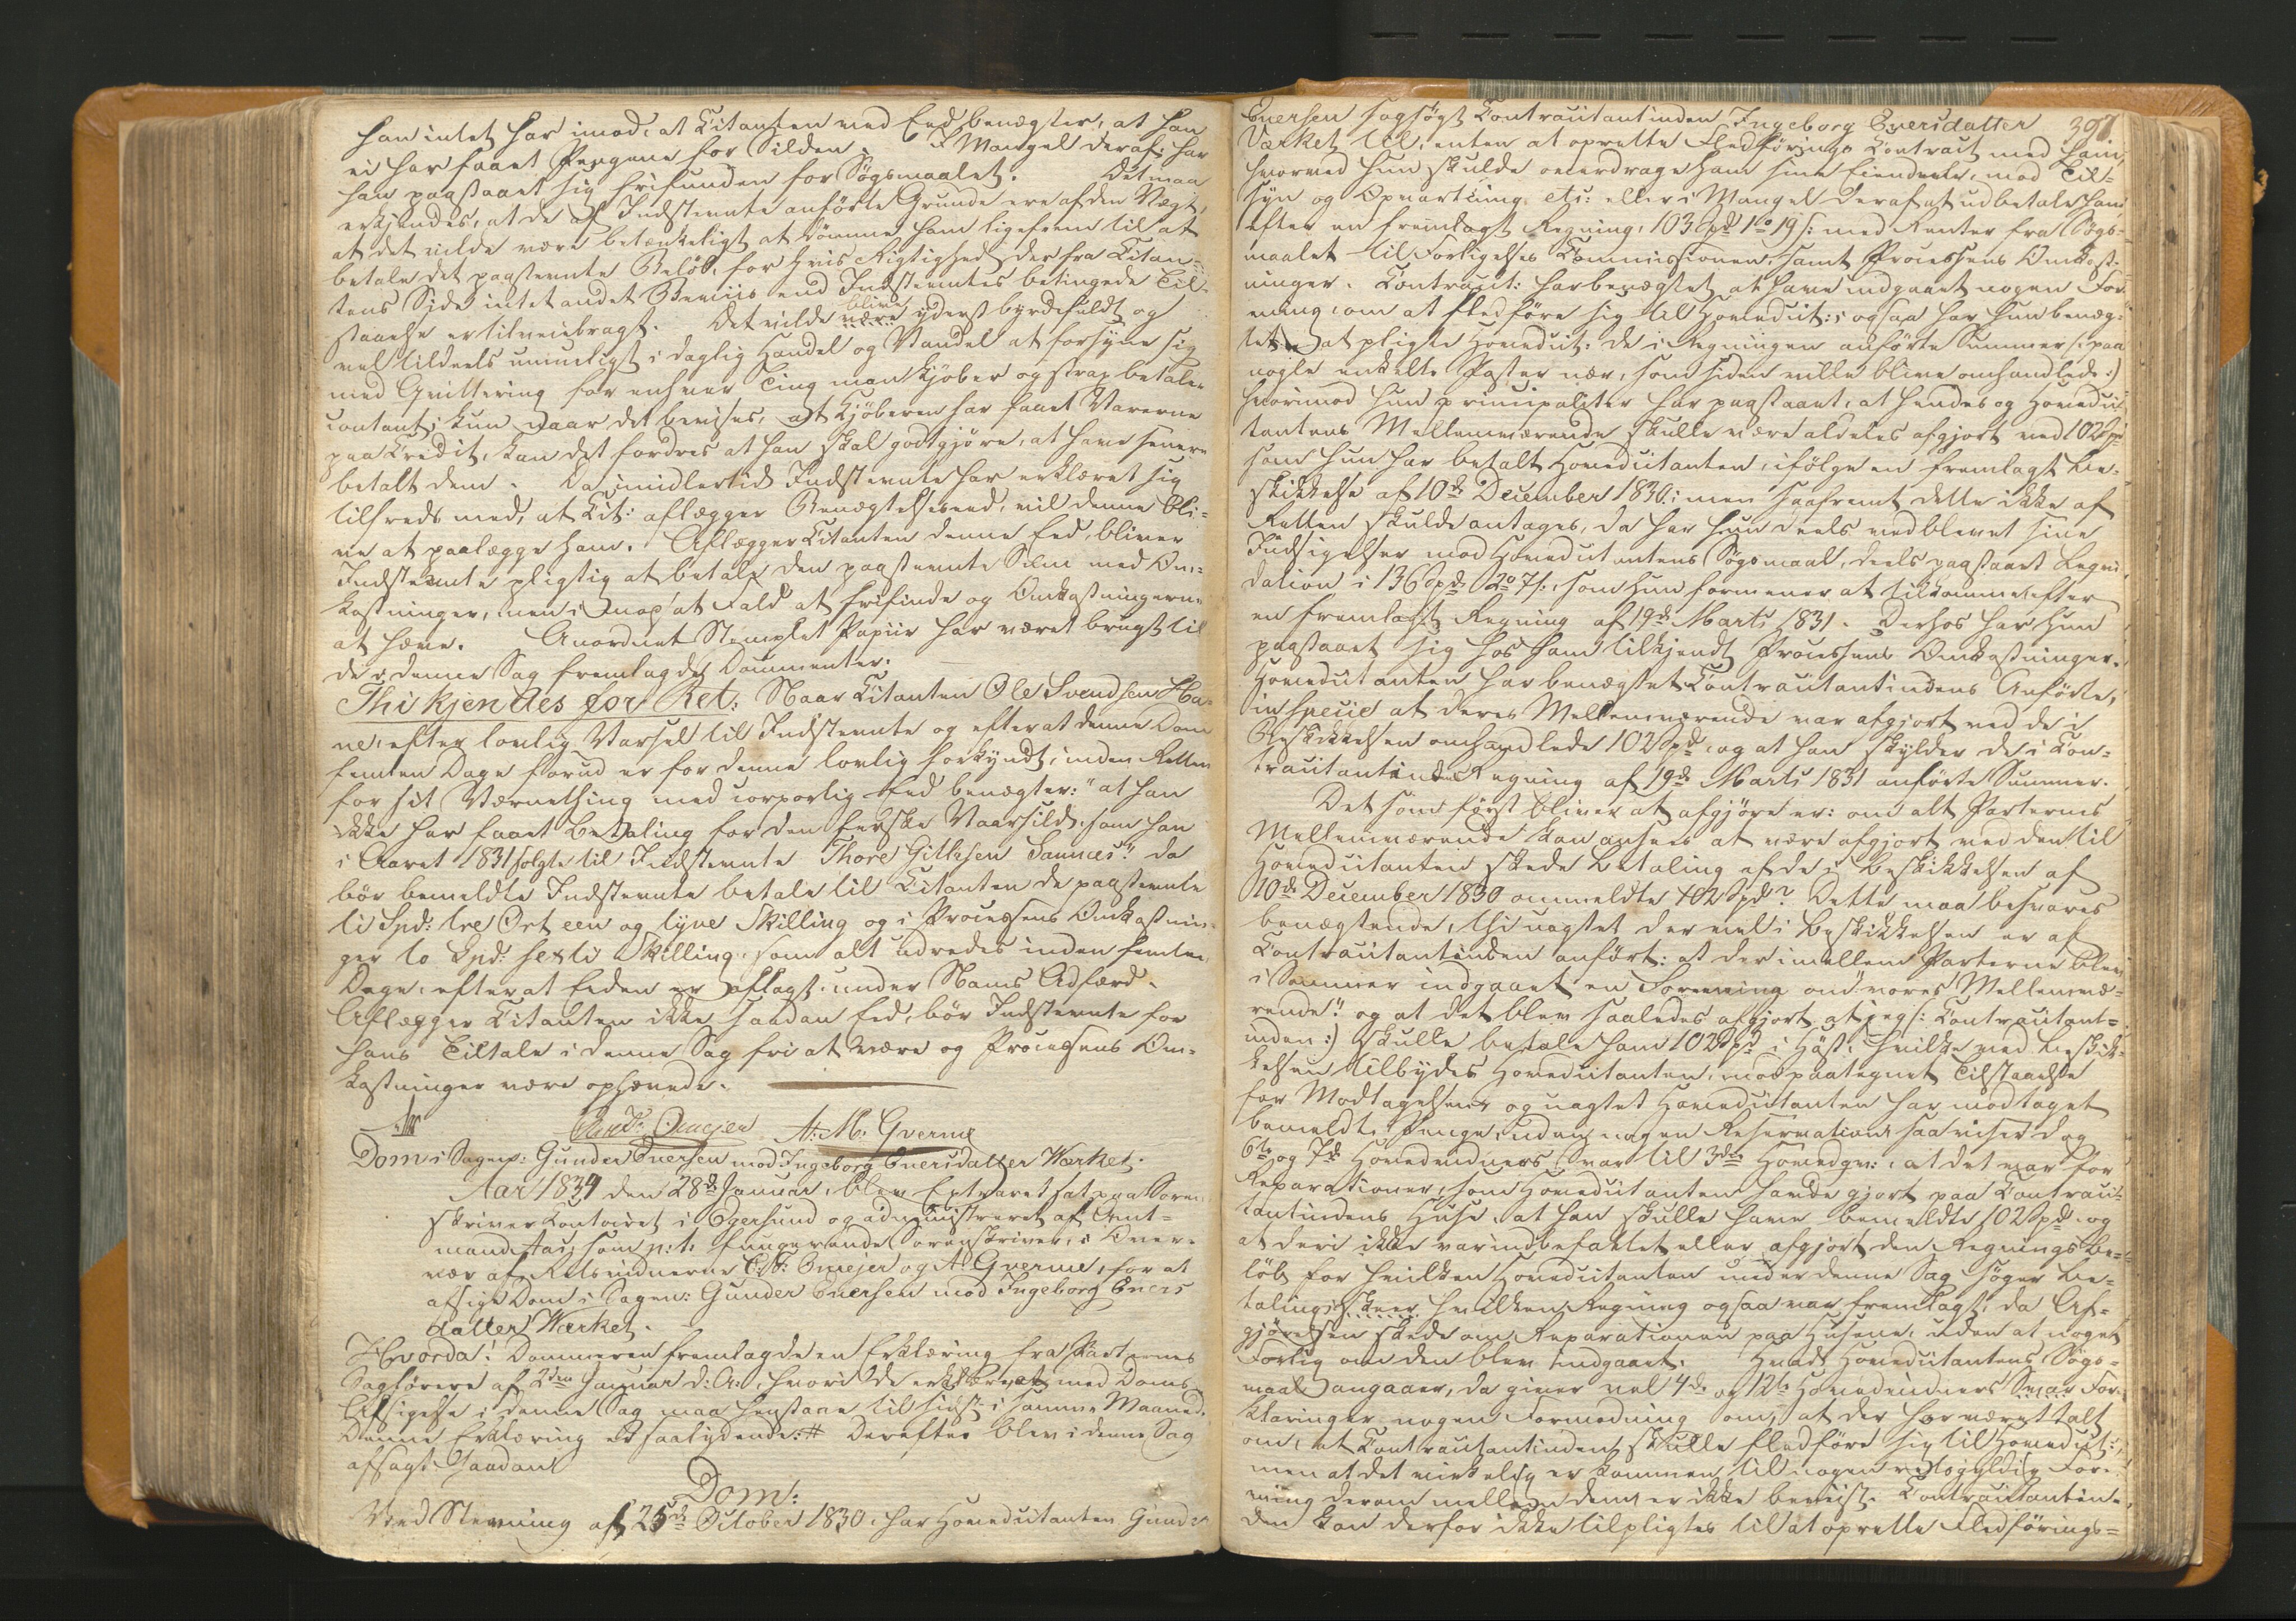 han intet har imod, at Citanten med Eed benægter, at han
ei har faaet Pengene for Silden. I Mangel deraf har
han paastaaet sig frifunden for Søgsmaalet. Det maa
erkjendes, at de af Indstevnte anførte Grunde ere af den Vægt,
at det vilde være betænkeligt at dømme ham ligefrem til at
betale det paastevnte Beløb, for hvis Rigtighed der fra Citan-
tens Side intet andet Beviis end Indstevntes betingede Til-
staaelse er tilveiebragt. Det vilde være blive yderst byrdefuldt og
vel tildeels umueligt i daglig Handel og Vandel at forsyne sig
med Qvittering for enhver Ting man kjøber og strax betaler
contant; kun naar det bevises, at Kjøberen har faaet Varerne
paa Credit, kan det fordres at han skal godtgjøre, at have senere
betalt dem. Da imidlertid Indstevnte har erklæret sig
tilfreds med, at Cit: aflægger Benægtelseseed, vil denne bli-
ve at paalægge ham. Aflægger Citanten denne Eed, bliver
Indstevnte pligtig at betale den paastevnte Sum med Om-
kostninger, men i modsat Fald at frifinde og Omkostningerne
at hæve. Anordnet Stemplet Papiir har været brugt til
de i denne Sag fremlagde Documenter.
Thi kjendes for Ret: Naar Citanten Ole Svendsen Ha-
ne, efter lovlig Varsel til Indstevnte og efterat denne Dom
femten Dage forud er for denne lovlig forkyndt, inden Retten
for sit Værnething med corporlig Eed benægter: "at han
ikke har faaet Betaling for den ferske Vaarsild, som han
i Aaret 1831 solgte til Indstevnte Thore Gitlesen Sannæs" da
bør bemeldte Indstevnte betale til Citanten de paastevnte
ti Spd: tre Ort een og tyve Skilling og i Processens Omkostnin-
ger to Spd: sexti Skilling, som alt udredes inden femten
Dage, efterat Eeden er aflagt, under Nams Adfærd.
Aflægger Citanten ikke saadan Eed, bør Indstevnte for
hans Tiltale i denne Sag fri at være og Processens Om-
kostninger være ophævede.
A: M: Gverne
Dom i Sagen: Gunder Eversen mod Ingeborg Eversdatter Værket.
Aar 1834 den 28de Januar, blev Extraret sat paa Soren-
skriver Contoiret i Egersund og administreret af Amt-
mand Aas, som p: t: fungerende Sorenskriver, i Over-
vær af Retsvidnerne C. F: Omejer og A Gverne, for at
afsige Dom i Sagen: Gunder Eversen mod Ingeborg Evers
datter Værket.
Hvorda! Dommeren fremlagde en Erklæring fra Parternes
Sagførere af 2den Januar d: A:, hvori de erklære at med Doms
Afsigelse i denne Sag maa henstaae til sidst i samme Maaned.
Denne Erklæring er saalydende: # Derefter blev i denne Sag
afsagt saadan
Dom:
Ved Stevning af 25de October 1830, har Hovedcitanten Gunder
397.
Eversen sagsøgt Contracitantinden Ingeborg Eversdatter
Værket til, enten at oprette Fledførings Contract med ham,
hvorved hun skulde overdrage ham sine Eiendeele, mod Til-
syn og Opvartning etc: eller i Mangel deraf at udbetale ham
efter en fremlagt Regning, 103 Spd 1 o 19 s: med Renter fra Søgs-
maalet til Forligelses Commissionen, samt Processens Omkost-
ninger. Contracit: har benægtet at have indgaaet nogen For-
ening, om at fledføre sig til Hovedcit:; ogsaa har hun benæg-
tet at pligte Hovedcit: de i Regningen anførte Summer (: paa
nogle enkelte Poster nær, som siden ville blive omhandlede:)
hvorimod hun principaliter har paastaaet, at hendes og Hovedci-
tantens Mellemværende skulle være aldeles afgjort ved 102 Spd
som hun har betalt Hovedcitanten, ifølge en fremlagt Be-
skikkelse af 10de December 1830; men saafremt dette ikke af
Retten skulde antages, da har hun deels vedblevet sine
Indsigelser mod Hovedcitantens Søgsmaal, deels paastaaet Liqvi-
dation i 136 Spd 2 o 7 s., som hun formener at tilkomme efter
en fremlagt Regning af 19de Marts 1831. Derhos har hun
paastaaet sig hos ham tilkjendt Processens Omkostninger.
Hovedcitanten har benægtet Contracitantindens Anførte,
in specie at deres Mellemværende var afgjort ved de i
Beskikkelsen omhandlede 102 Spd, og at han skylder de i Con-
tracitantindens Regning af 19de Marts 1831 anførte Summer.
Det som først bliver at afgjøre er: om alt Parternes
Mellemværende kan ansees at være afgjort ved den til
Hovedcitanten skede Betaling af de i Beskikkelsen af
10de December 1830 ommeldte 102 Spd? Dette maa besvares
benægtende, thi uagtet der vel i Beskikkelsen er af
Contracitantinden anført: at der imellem Parterne blev
i Sommer indgaaet en Forening om "vores Mellemvæ-
rende" og at det blev saaledes afgjort at jeg (: Contracitant-
inden:) skulle betale ham 102 Spd i Høst, hvilke ved Beskik-
kelsen tilbydes Hovedcitanten, mod paategnet Tilstaaelse
for Modtagelsen, og uagtet Hovedcitanten har modtaget
bemeldte Penge, uden nogen Reservation, saa viser dog
6te og 7de Hovedvidners Svar til 3die Hovedqv:, at det var for
Reparationer, som Hovedcitanten havde gjort paa Contraci-
tantindens Huse, at han skulle have bemeldte 102 Spd. og
at deri ikke var indbefattet eller afgjort den Regnings Be-
løb, for hvilken Hovedcitanten under denne Sag søger Be-
taling; hvilken Regning ogsaa var fremlagt, da Af-
gjørelsen skede om Reparationen paa Husene, uden at noget
Forlig om den blev indgaaet. Hvad Hovedcitantens Søgs-
maal angaaer, da giver vel 4de og 12te Hovedvidners Svar For-
klaringer nogen Formodning om, at der har været talt
om, at Contracitantinden skulle fledføre sig til Hovedcit:,
men at det virkelig er kommen til nogen retsgyldig For-
ening derom mellem dem er ikke beviist. Contracitantin-
den kan derfor ikke tilpligtes til at oprette Fledførings-